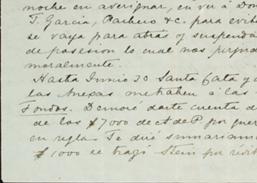 noche en averignar, en ver á Don
T. Garcia, Pacheco &c. para evit
se vaya para atrás y suspend
de posesion lo cual nos perju
moralmente.
Hasta Junio 30 Santa Cata y d
las Anexas me traen á las
Fondos. Demoró darte cuenta d
de los $7000 de ct de P por quer
en regla. Te dió sumariam
$1000 se trajo Stein por